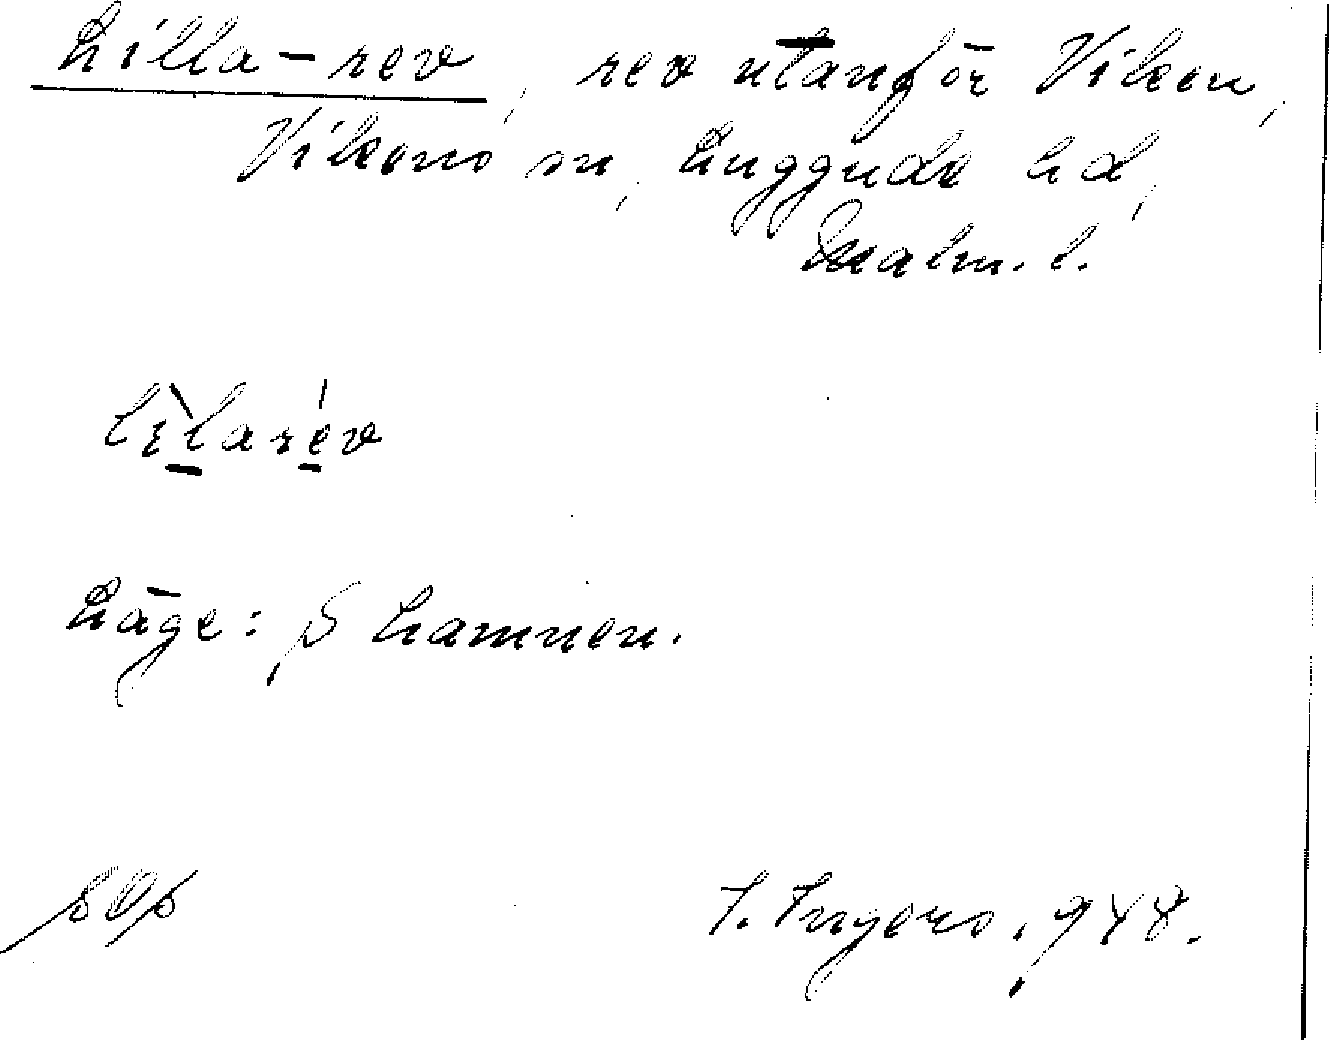 Lilla-rev, rev utanför Viken,
Vikens sn, Luggude hd,
Malm. l.
lìlarév
Läge: S hamnen.
I. Ingers, 948.